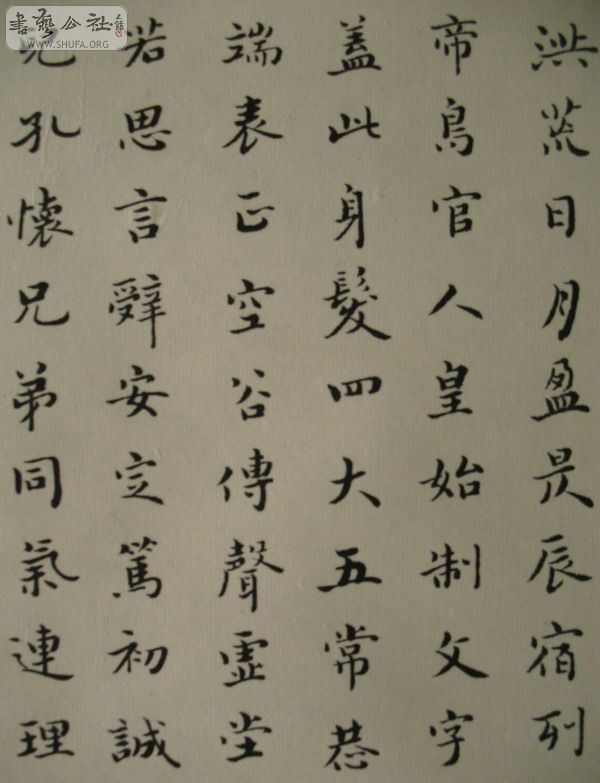 洪荒日月盈昃辰宿列
帝鳥官人皇始制文字
蓋此身髮四大五常恭
端表正空谷傳聲虛堂
若思言辭安定篤初誠
兒孔懷兄弟同氣連理
書藝公社
WWW.SHUFA.ORG